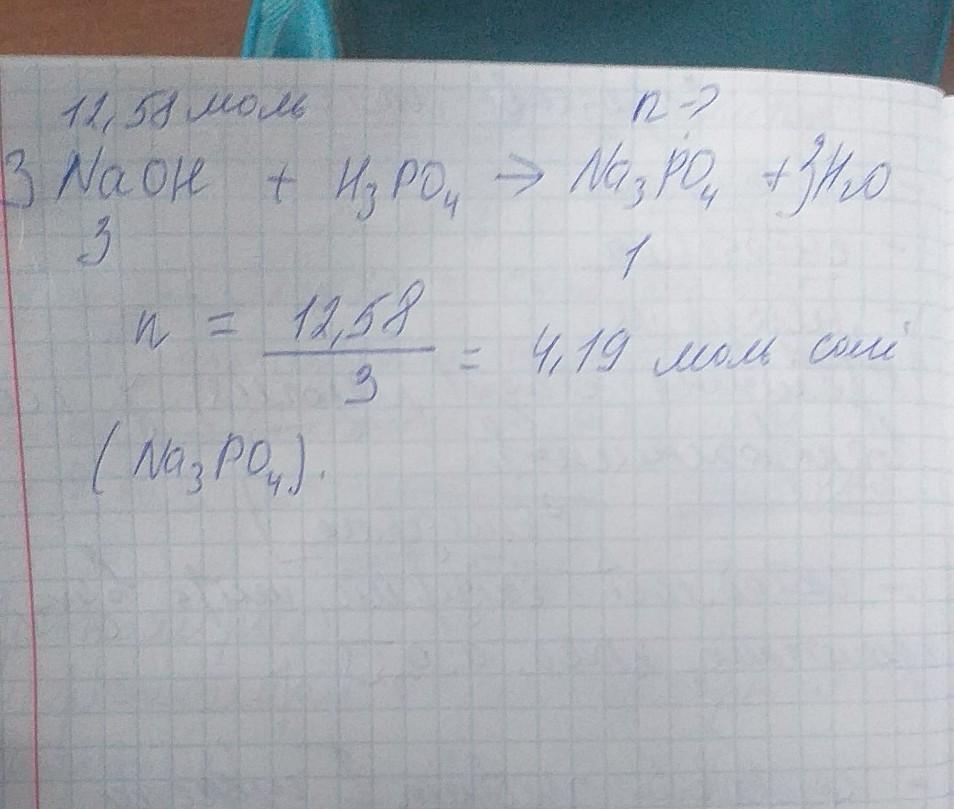 12,58 моль n-?
3 NaOH + H₃PO₄ → Na₃PO₄ + 3H₂O
3 1
n = 12,58 / 3 = 4,19 моль солі
(Na₃PO₄).